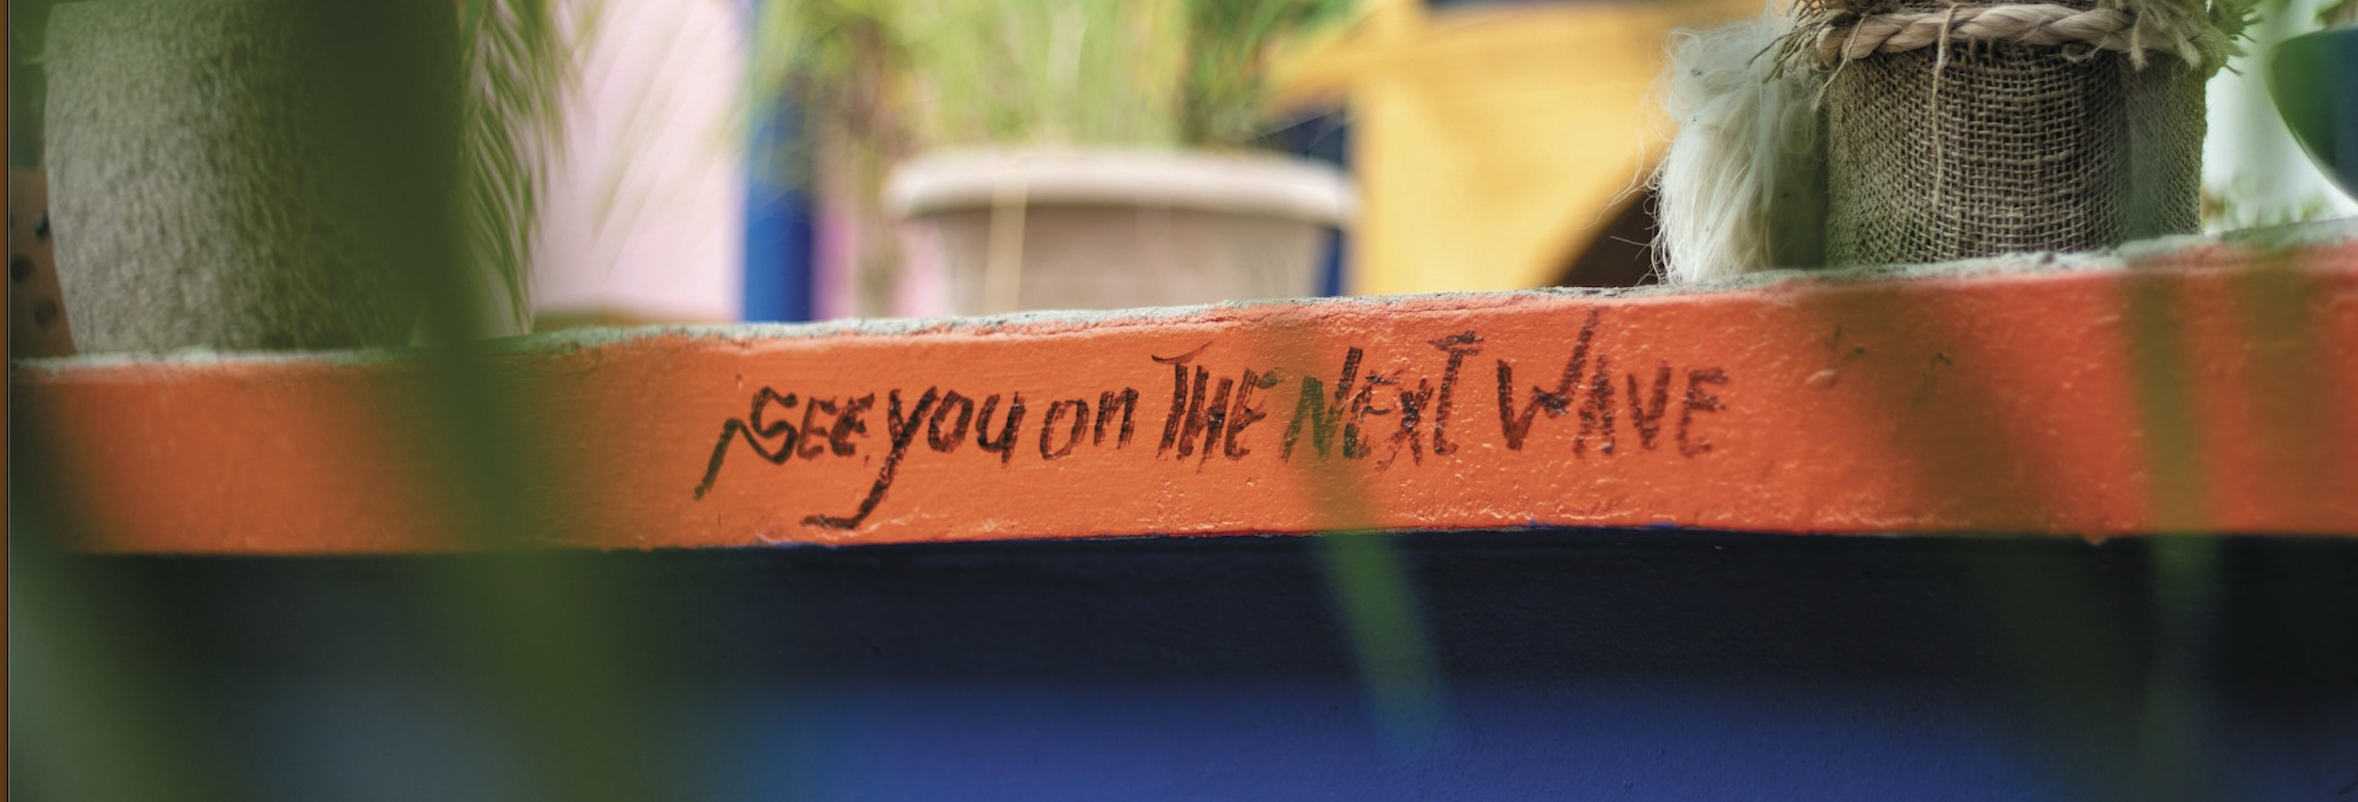 SEE YOU ON THE NEXT WAVE